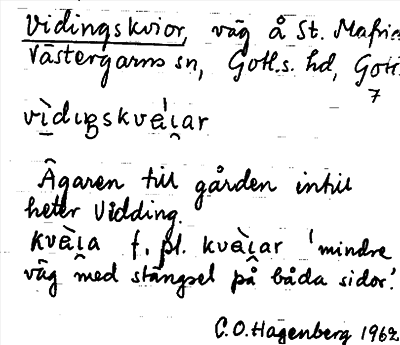 Vidingskvior, väg å St. Mafrids
Västergarns sn, Gotl.s. hd, Gotl
7
vìdıŋskvæ̀ı̯ar
Ägaren till gården intill
heter Vidding.
kvæ̀ı̯a f. pl. kvæ̀ı̯ar 'mindre
väg med stängsel på båda sidor.'
C.O. Hagenberg 1962